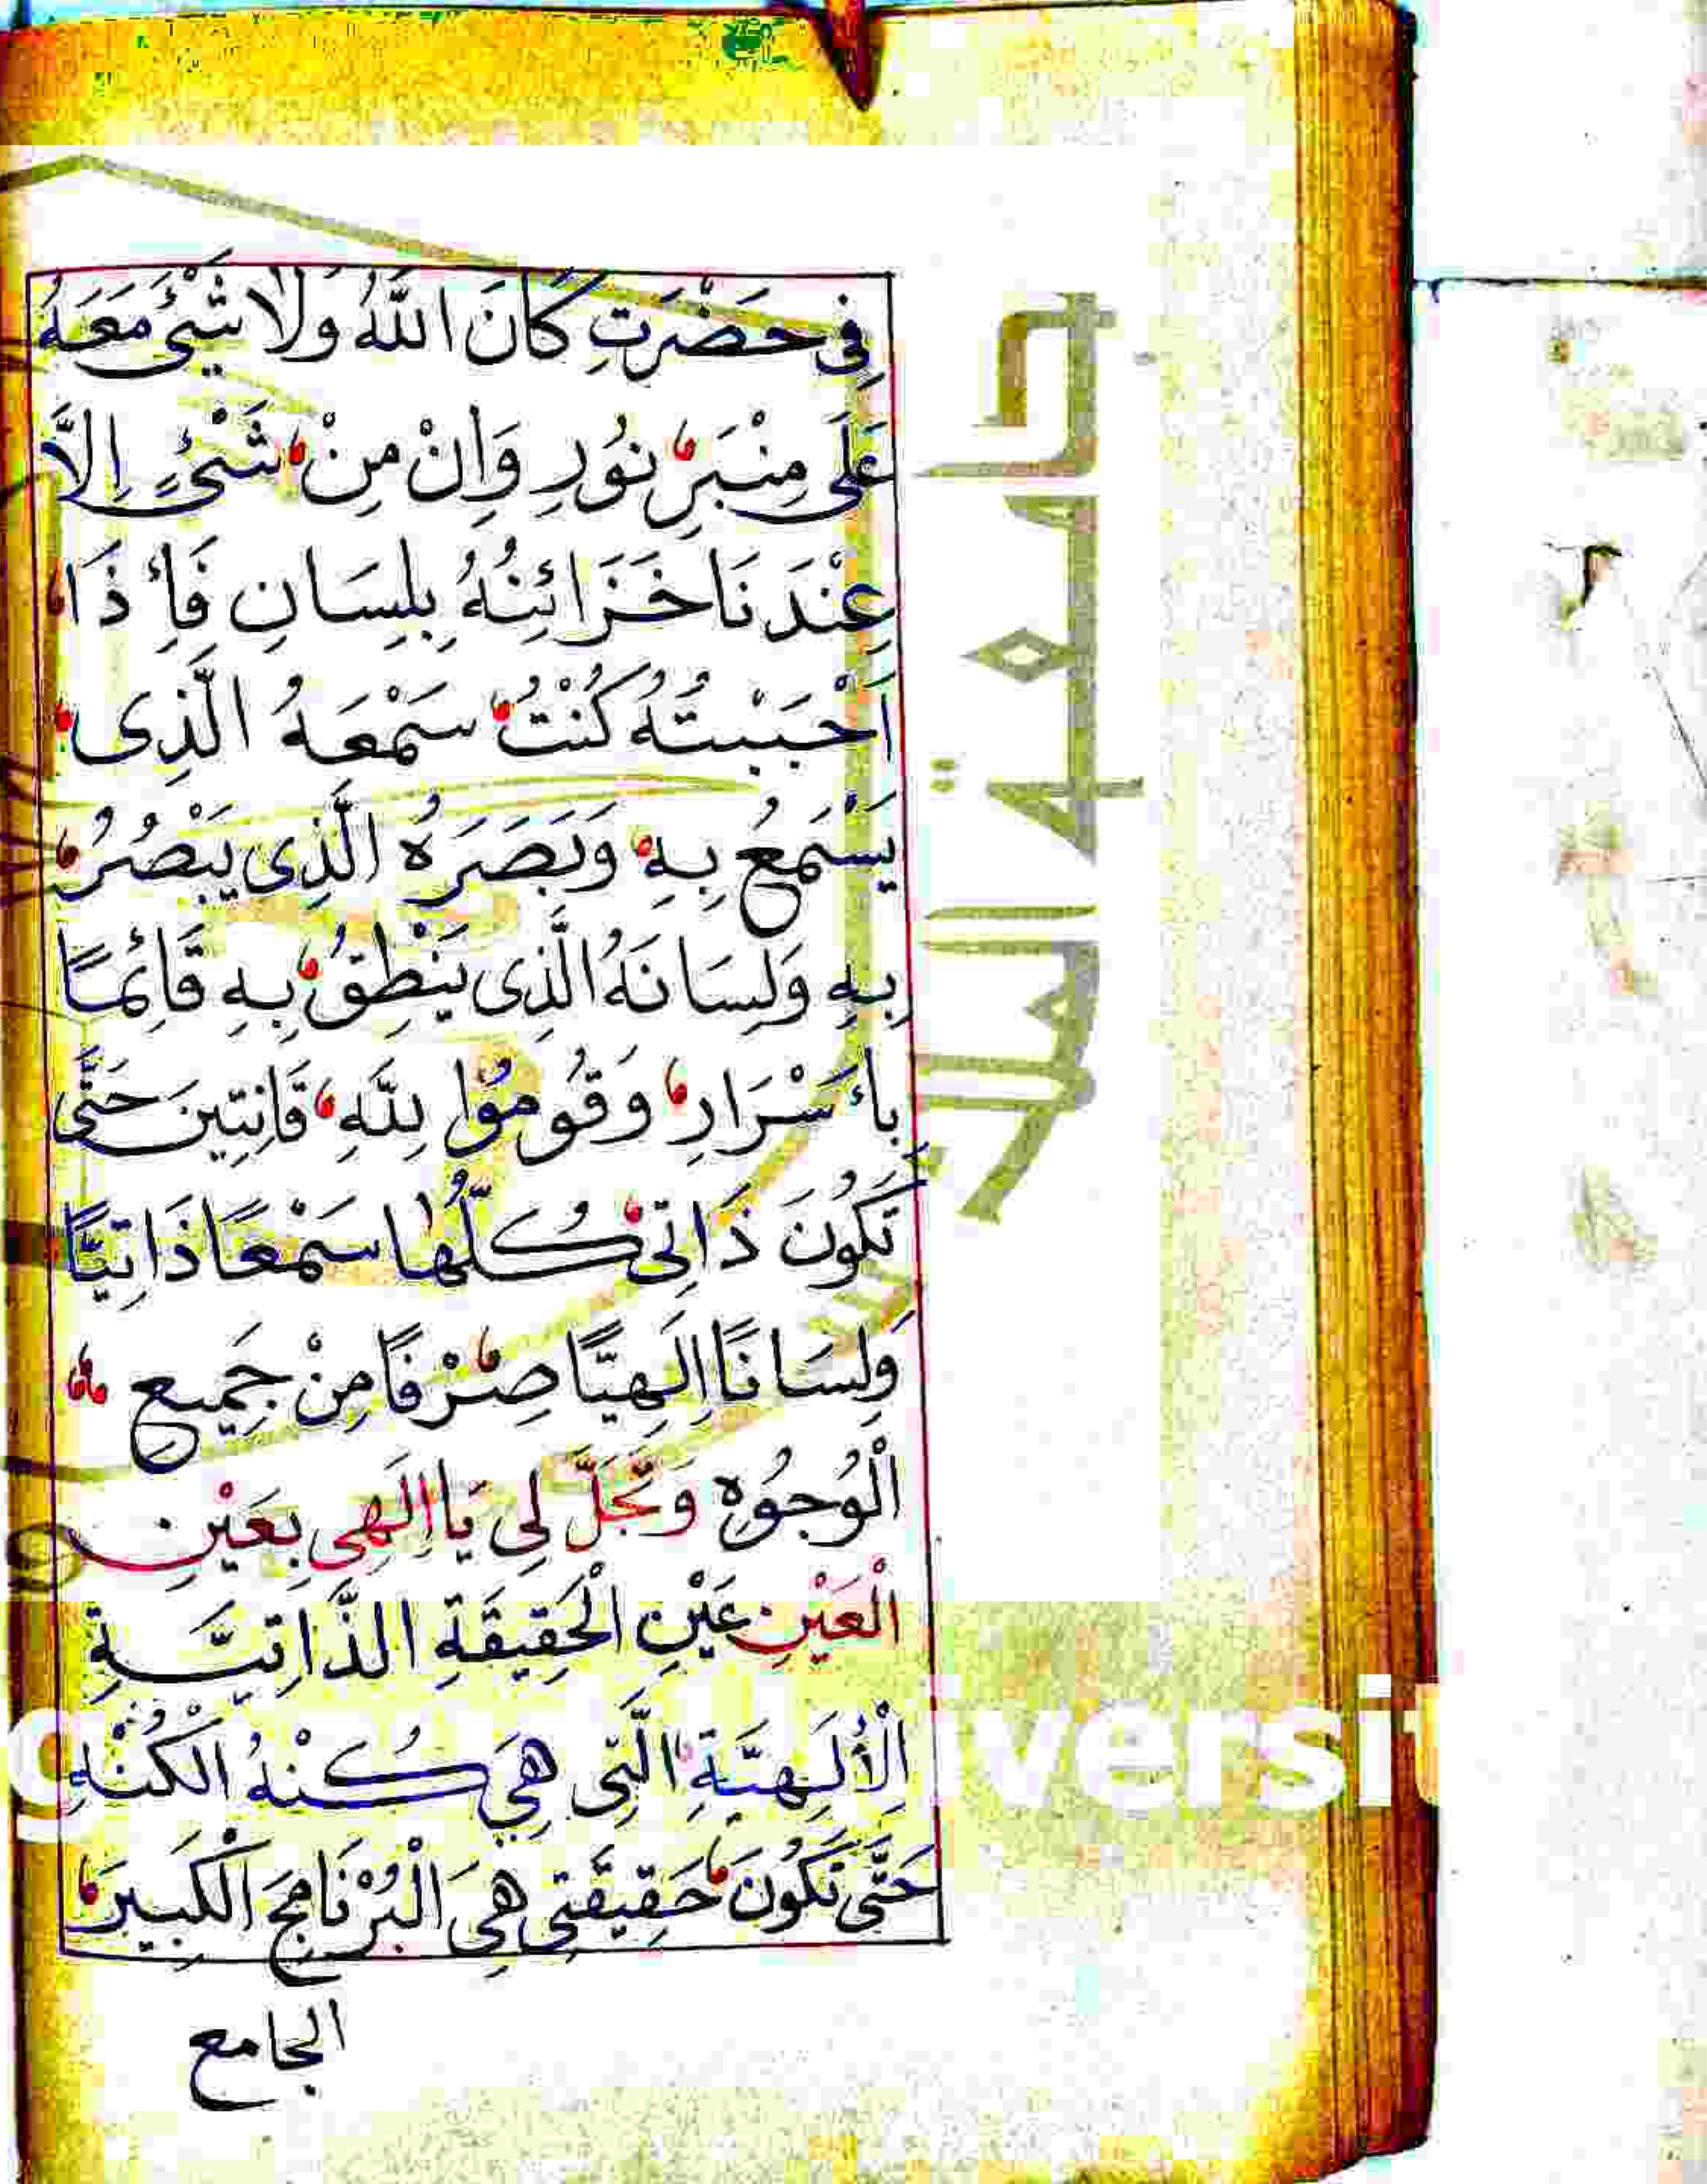 فِي حَضْرَتِ كَانَ اللّٰهُ وَلَا شَيْئَ مَعَهُ
عَلَى مِنْبَرِ نُورِ وَاِنْ مِنْ شَيْئٍ اِلَّا
عِنْدَنَا خَزَائِنُهُ بِلِسَانِ فَأِذَا
اَحْبَبْتُهُ كُنْتُ سَمْعَهُ الَّذِى
يَسْمَعُ بِهِ وَبَصَرَهُ الَّذِى يَبْصُرُ
بِهِ وَلِسَانَهُ الَّذِى يَنْطِقُ بِهِ قَائِمًا
بِأَسْرَارِ وَقُومُوْا لِلّٰهِ قَانِتِينَ حَتَّى
تَكُونَ ذَاتِى كُلُّهَا سَمْعًا ذَاتِيًّا
وَلِسَانًا اِلَهِيًّا صِرْفًا مِنْ جَمِيعِ
الْوُجُوهِ وَتَجَلَّ لِى يَا اِلَهِى بِعَيْنِ
الْعَيْنِ عَيْنِ الْحَقِيقَةِ الذَّاتِيَّةِ
الْأُلِهِيَّةِ الَّتِى هِيَ كُنْهُ الْكُنْهِ
حَتَّى تَكُونَ حَقِيقَتِى هِيَ الْبُرْنَامِجَ الْكَبِيرَ
الجامع
جامعة الملك
versit